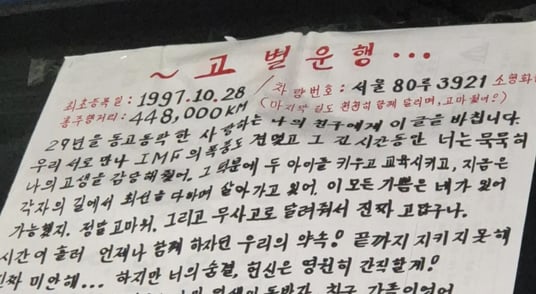 ~ 고 별 운 행 ...
최초등록일 : 1997.10.28 / 차량번호 : 서울 80주 3921 소형화
총주행거리 : 448,000KM (마지막 길도 천천히 함께 달리며, 고마웠어요)
29년을 동고동락한 사랑하는 나의 친구에게 이 글을 바칩니다.
우리 서로 만나 IMF의 폭풍도 견뎠고 그 긴 시간동안 너는 묵묵히
나의 고생을 감당해줬어. 그 덕분에 두 아이를 키우고 교육시키고, 지금은
각자의 길에서 최선을 다하며 살아가고 있어. 이 모든 기쁨은 네가 있어
가능했지. 정말 고마워. 그리고 무사고로 달려줘서 진짜 고맙구나.
시간이 흘러 언제나 함께 하자던 우리의 약속! 끝까지 지키지 못해
진짜 미안해... 하지만 너의 숨결, 헌신은 영원히 간직할게!